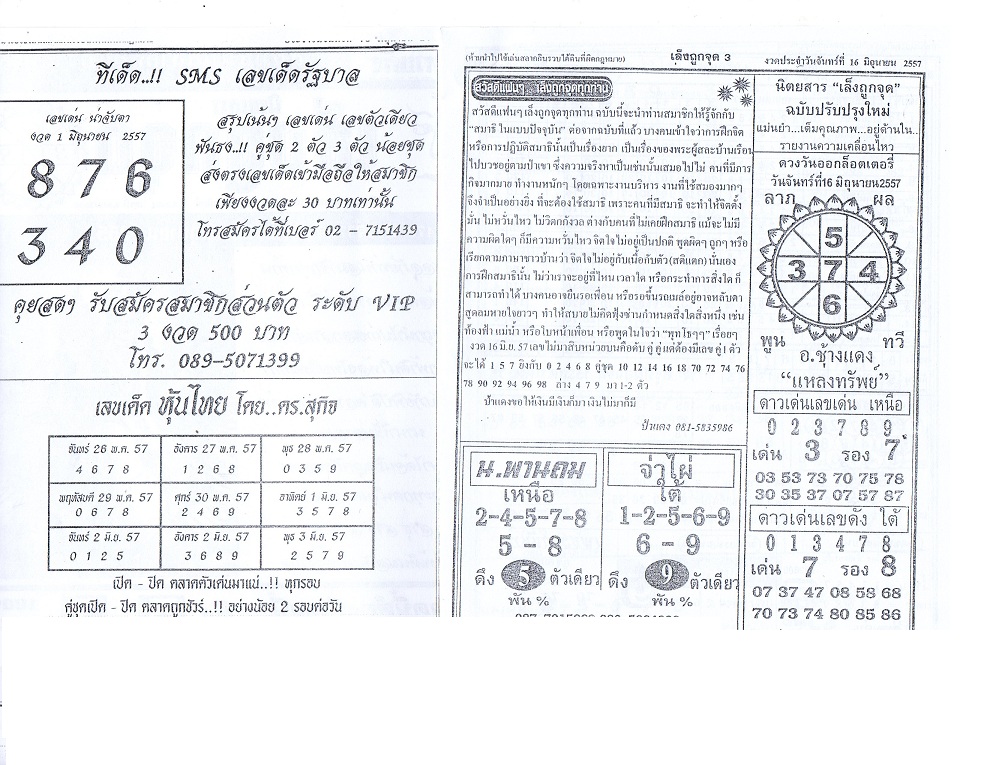 ทีเด็ด..!! SMS เลขเด็ดรัฐบาล
เลขเด่น น่าจับตา
งวด 1 มิถุนายน 2557
8 7 6
3 4 0
สรุปเน้นๆ เลขเด่น เลขตัวเดียว
ฟันธง..!! คู่ชุด 2 ตัว 3 ตัว น้อยชุด
ส่งตรงเลขเด็ดเข้ามือถือให้สมาชิก
เพียงงวดละ 30 บาทเท่านั้น
โทรสมัครได้ที่เบอร์ 02 - 7151439
คุยสดๆ รับสมัครสมาชิกส่วนตัว ระดับ VIP
3 งวด 500 บาท
โทร. 089-5071399
เลขเด็ด หุ้นไทย โดย..ดร.สุกิจ
จันทร์ 26 พ.ค. 57 อังคาร 27 พ.ค. 57 พุธ 28 พ.ค. 57
4 6 7 8 1 2 6 8 0 3 5 9
พฤหัสบดี 29 พ.ค. 57 ศุกร์ 30 พ.ค. 57 อาทิตย์ 1 มิ.ย. 57
0 6 7 8 2 4 6 9 3 5 7 8
จันทร์ 2 มิ.ย. 57 อังคาร 2 มิ.ย. 57 พุธ 3 มิ.ย. 57
0 1 2 5 3 6 8 9 2 5 7 9
เปิด - ปิด ตลาดตัวเด่นมาแน่..!! ทุกรอบ
คู่ชุดเปิด - ปิด ตลาดถูกชัวร์..!! อย่างน้อย 2 รอบต่อวัน
(ห้ามนำไปใช้เล่นสลากกินรวบได้ดินที่ผิดกฎหมาย) เล็งถูกจุด 3 งวดประจำวันจันทร์ที่ 16 มิถุนายน 2557
สวัสดีแฟนๆ เล็งถูกจุดทุกท่าน
สวัสดีแฟนๆ เล็งถูกจุดทุกท่าน ฉบับนี้จะนำท่านสมาชิกให้รู้จักกับ
"สมาธิ ในแบบปัจจุบัน" ต่อจากฉบับที่แล้ว บางคนเข้าใจว่าการฝึกจิต
หรือการปฏิบัติสมาธินั้นเป็นเรื่องยาก เป็นเรื่องของพระผู้สละบ้านเรือน
ไปบวชอยู่ตามป่าเขา ซึ่งความจริงหาเป็นเช่นนั้นเสมอไปไม่ คนที่มีภาร
กิจมากมาย ทำงานหนักๆ โดยเฉพาะงานบริหาร งานที่ใช้สมองมากๆ
จึงจำเป็นอย่างยิ่ง ที่จะต้องใช้สมาธิ เพราะคนที่มีสมาธิ จะทำให้จิตตั้ง
มั่น ไม่หวั่นไหว ไม่วิตกกังวล ต่างกับคนที่ไม่เคยฝึกสมาธิ แม้จะไม่มี
ความผิดใดๆ ก็มีความหวั่นไหว จิตใจไม่อยู่เป็นปกติ พูดผิดๆ ถูกๆ หรือ
เรียกตามภาษาชาวบ้านว่า จิตใจไม่อยู่กับเนื้อกับตัว(สติแตก)นั่นเอง
การฝึกสมาธินั้น ไม่ว่าเราจะอยู่ที่ไหน เวลาใด หรือกระทำการสิ่งใด ก็
สามารถทำได้ บางคนอาจยืนรอเพื่อน หรือรอขึ้นรถเมล์อยู่อาจหลับตา
สูดลมหายใจยาวๆ ทำให้สบายไม่คิดฟุ้งซ่านกำหนดสิ่งใดสิ่งหนึ่ง เช่น
ท้องฟ้า แม่น้ำ หรือใบหน้าเพื่อน หรือพูดในใจว่า "พุทโธๆๆ" เรื่อยๆ
งวด 16 มิ.ย. 57 เลขไม่มาสิบหน่วยบนคือดับ คู่ คู่แต่ต้องมีเลข คู่ 1 ตัว
จะได้ 1 5 7 ยิงกับ 0 2 4 6 8 คู่ชุด 10 12 14 16 18 70 72 74 76
78 90 92 94 96 98 ล่าง 4 7 9 มา 1-2 ตัว
ป๋าแดงขอให้เงินมีเงินก็มา เงินไม่มาก็มี
ป๋าแดง 081-5835986
น.พานถม จ่าไผ่
เหนือ ใต้
2-4-5-7-8 1-2-5-6-9
5 - 8 6 - 9
ดึง 5 ตัวเดียว ดึง 9 ตัวเดียว
พัน % พัน %
นิตยสาร "เล็งถูกจุด"
ฉบับปรับปรุงใหม่
แม่นยำ...เต็มคุณภาพ...อยู่ด้านใน..
รายงานความเคลื่อนไหว
ดวงวันออกล็อตเตอรี่
วันจันทร์ที่16 มิถุนายน2557
ลาภ ผล
5
3 7 4
6
พูน ทวี
อ.ช้างแดง
"แหล่งทรัพย์"
ดาวเด่นเลขเด่น เหนือ
0 2 3 7 8 9
เด่น 3 รอง 7
03 53 73 70 75 78
30 35 37 07 57 87
ดาวเด่นเลขดัง ใต้
0 1 3 4 7 8
เด่น 7 รอง 8
07 37 47 08 58 68
70 73 74 80 85 86